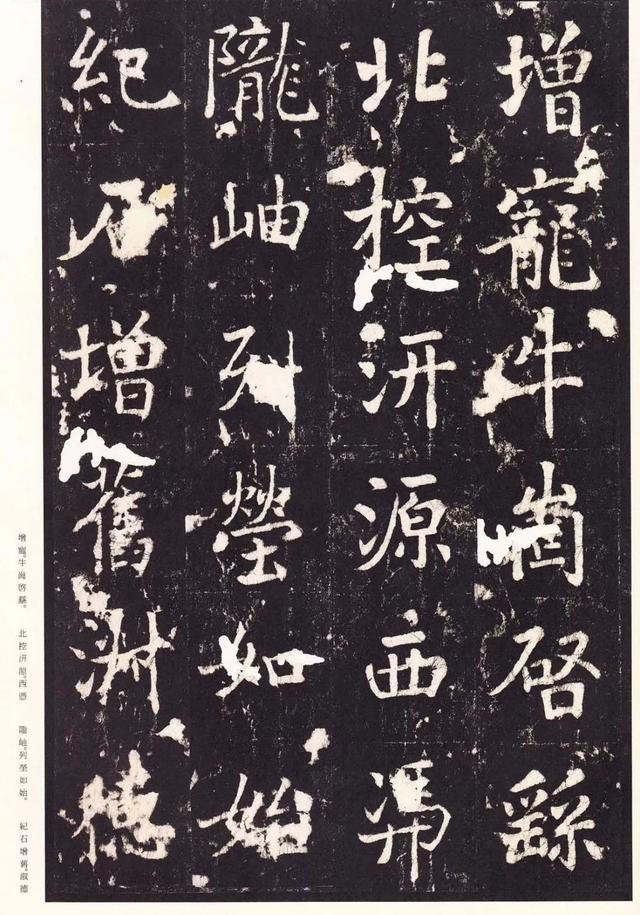 增寵牛崗啓繇
北控汧源西馮
隴岫列塋如始
紀石增舊淑德
增寵。牛崗啓繇。 北控汧源。西憑 隴岫。列塋如始。 紀石增舊。淑德